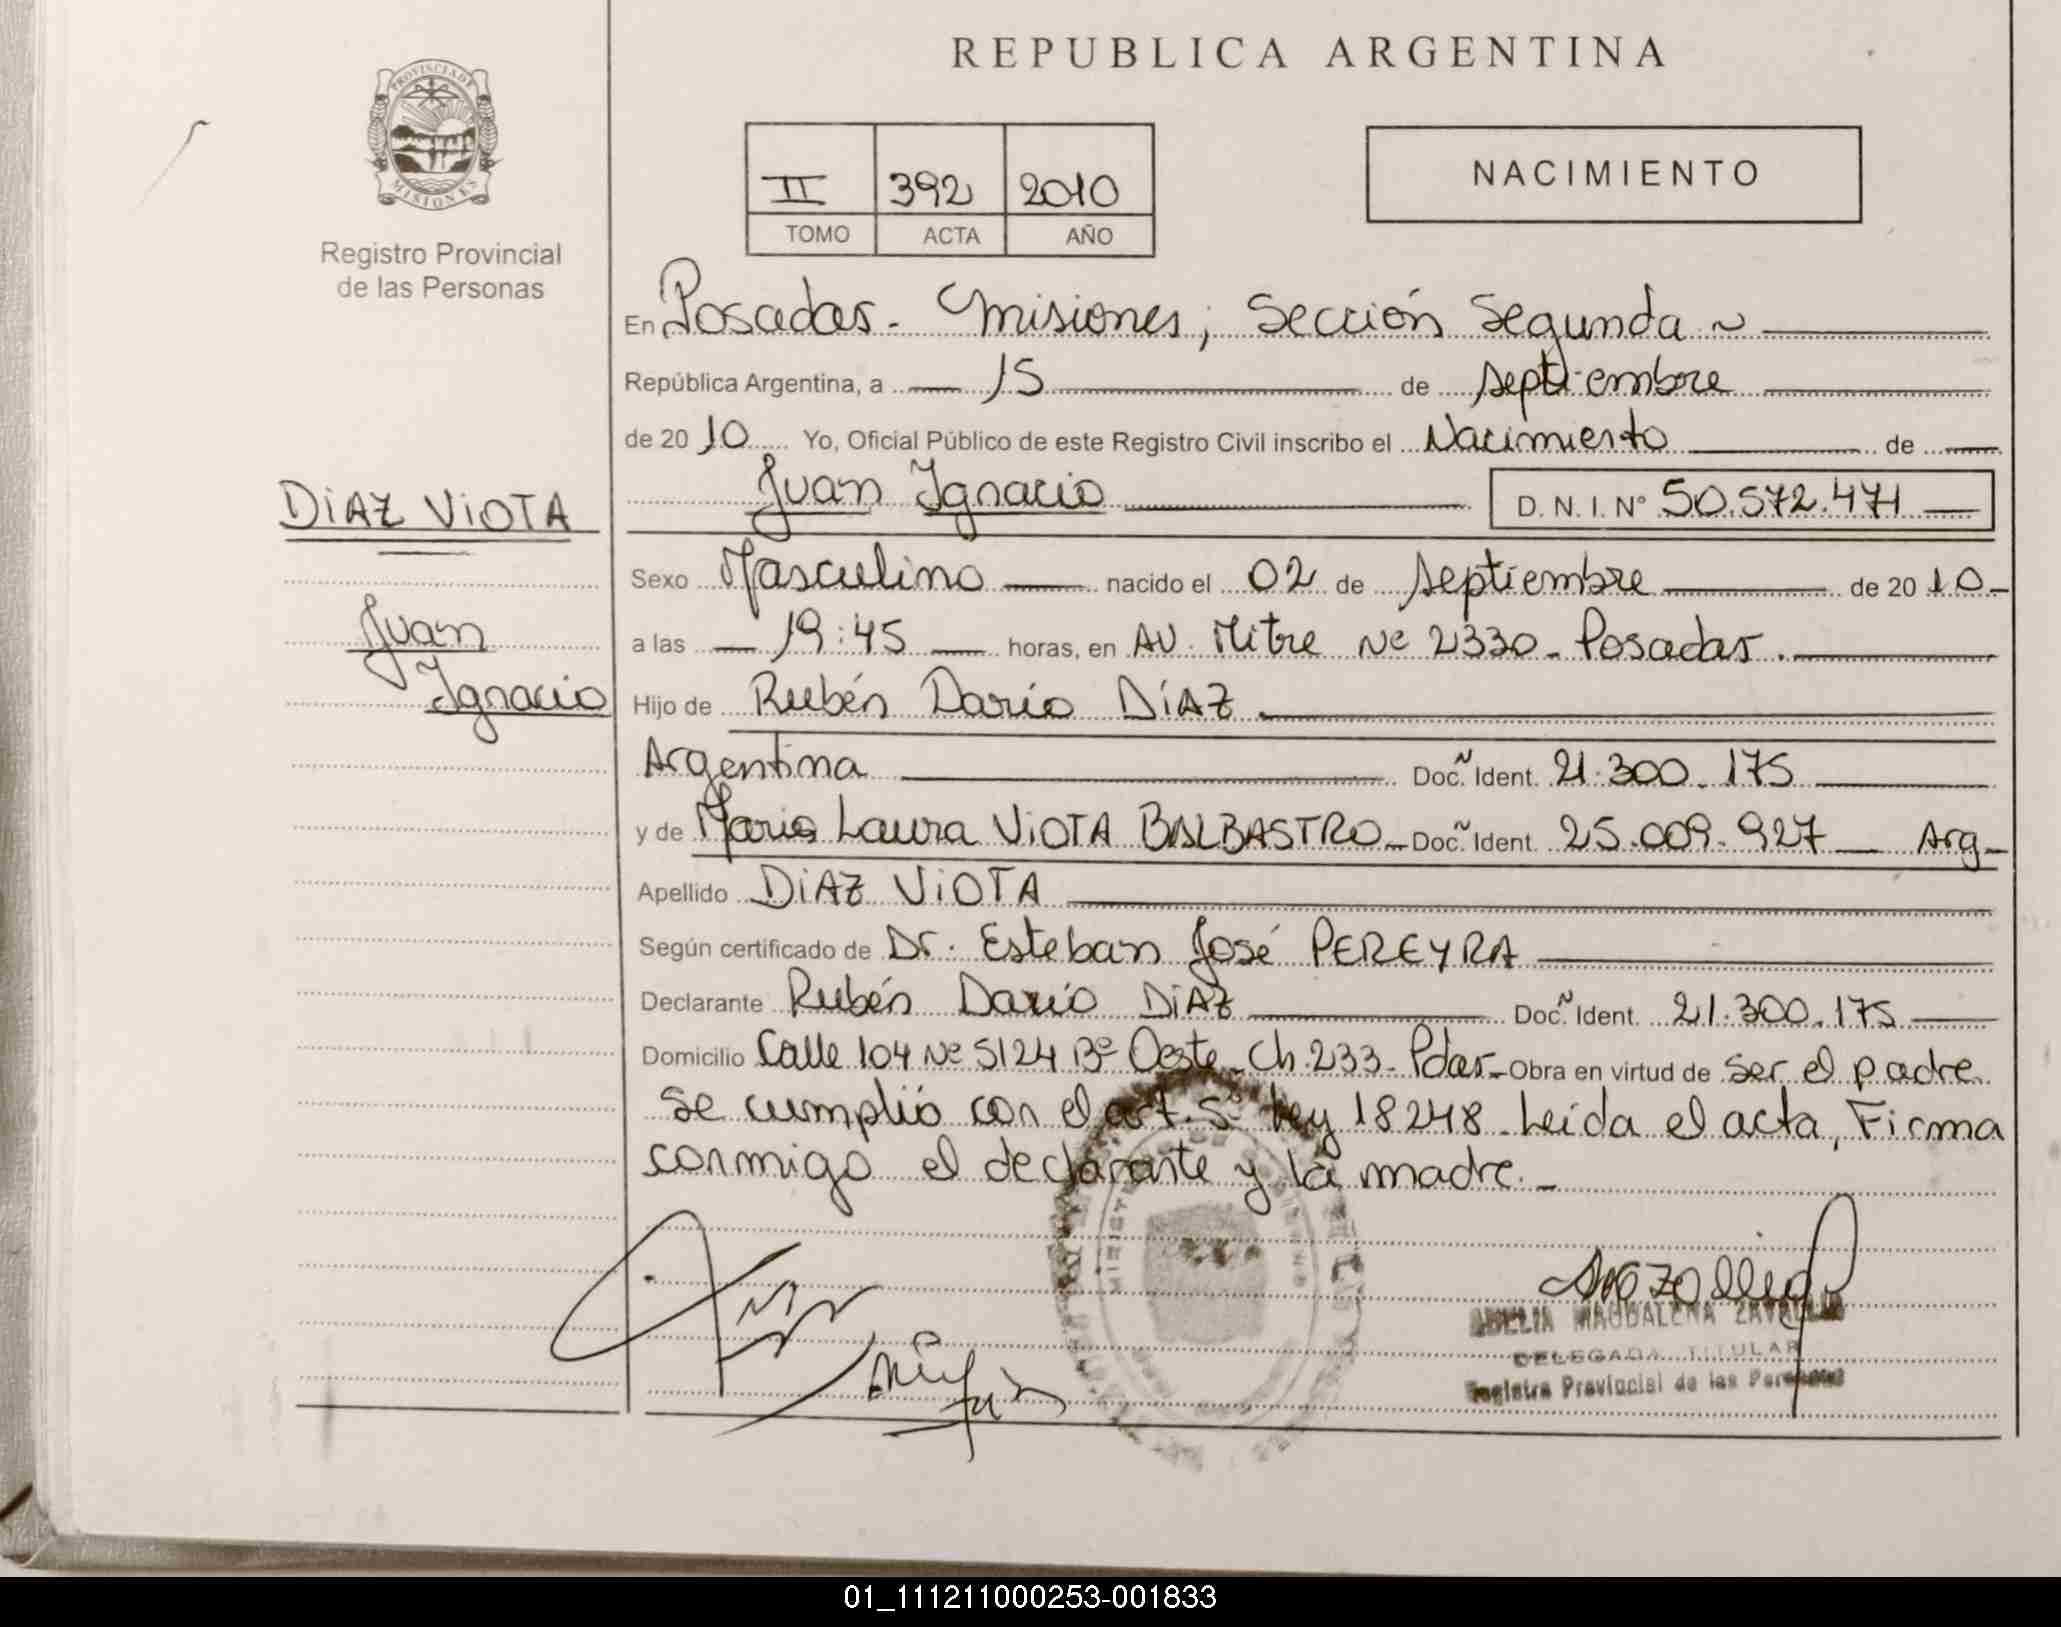 REPUBLICA ARGENTINA
PROVINCIA DE
MISIONES
Registro Provincial
de las Personas
II 392 2010
TOMO ACTA AÑO
NACIMIENTO
En Posadas - Misiones, Sección Segunda ~
República Argentina, a 15 de septiembre
de 2010 Yo, Oficial Público de este Registro Civil inscribo el Nacimiento de
Juan Ignacio D. N. I. Nº 50.572.471
DIAZ VIOTA
Juan
Ignacio
Sexo Masculino nacido el 02 de septiembre de 2010
a las 19:45 horas, en AV. Mitre Nº 2330 - Posadas.
Hijo de Rubén Darío DÍAZ
Argentina Doc. N Ident. 21.300.175
y de María Laura VIOTA BALBASTRO - Doc. N Ident. 25.009.927 Arg-
Apellido DIAZ VIOTA
Según certificado de Dr. Esteban José PEREYRA
Declarante Rubén Darío DIAZ Doc. N Ident. 21.300.175
Domicilio Calle 104 Nº 5124 Bº Oeste - Ch. 233 - Pdas - Obra en virtud de ser el padre
se cumplió con el art. 5º Ley 18248 - Leída el acta, Firma
conmigo el declarante y la madre. -
MAGDALENA
DELEGADA TITULAR
Registro Provincial de las Personas
01_111211000253-001833